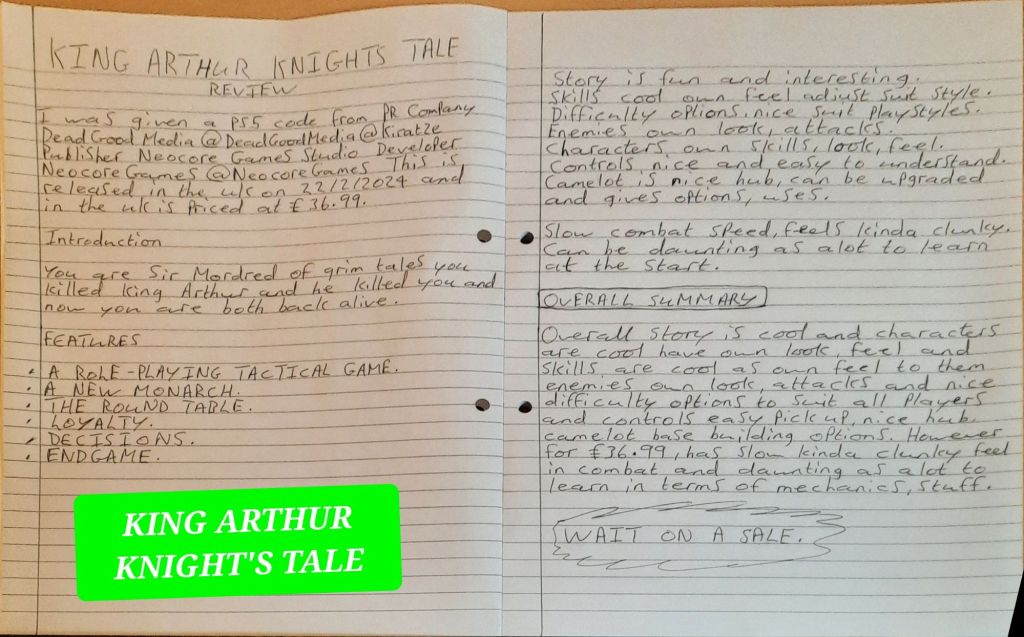 KING ARTHUR KNIGHTS TALE
REVIEW
I was given a PS5 code from PR Company
DeadGood Media @DeadGoodMedia @Kirat2e
Publisher Neocore Games Studio Developer
Neocore Games @NeocoreGames This is
released in the uk on 22/2/2024 and
in the uk is priced at £36.99.
Introduction
You are Sir Mordred of grim tales you
killed king Arthur and he killed you and
now you are both back alive.
FEATURES
• A ROLE-PLAYING TACTICAL GAME.
• A NEW MONARCH.
• THE ROUND TABLE.
• LOYALTY.
• DECISIONS.
• ENDGAME.
KING ARTHUR
KNIGHT'S TALE
Story is fun and interesting.
Skills cool own feel adjust suit style.
Difficulty options, nice suit playstyles.
Enemies own look, attacks.
Characters own skills, look, feel.
Controls nice and easy to understand.
Camelot is nice hub, can be upgraded
and gives options, uses.
Slow combat speed, feels kinda clunky.
Can be daunting as alot to learn
at the start.
OVERALL SUMMARY
Overall story is cool and characters
are cool have own look, feel and
skills are cool as own feel to them
enemies own look, attacks and nice
difficulty options to suit all players
and controls easy pick up, nice hub
camelot base building options. However
for £36.99, has slow kinda clunky feel
in combat and daunting as alot to
learn in terms of mechanics, stuff.
WAIT ON A SALE.